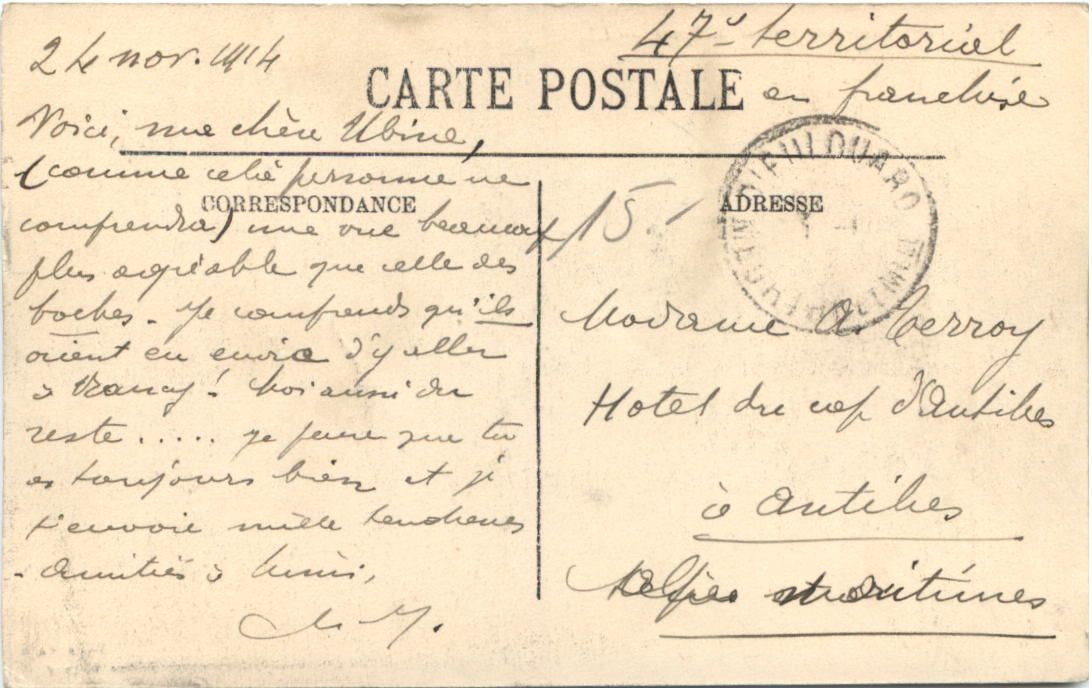 24 nov. 1914
47e territorial
CARTE POSTALE
en franchise
Voici, ma chère Ubine,
(comme cela personne ne
CORRESPONDANCE
comprendra) une vue beaucoup
plus agréable que celle des
boches. Je comprends qu'ils
aient eu envie d'y aller
à Nancy! Moi aussi du
reste ..... je pense que tu
es toujours bien et je
t'envoie mille tendresses
amitiés à Mimi,
15
ADRESSE
Madame A. Terroy
Hotel du cap d'Antibes
à Antibes
Alpes Maritimes